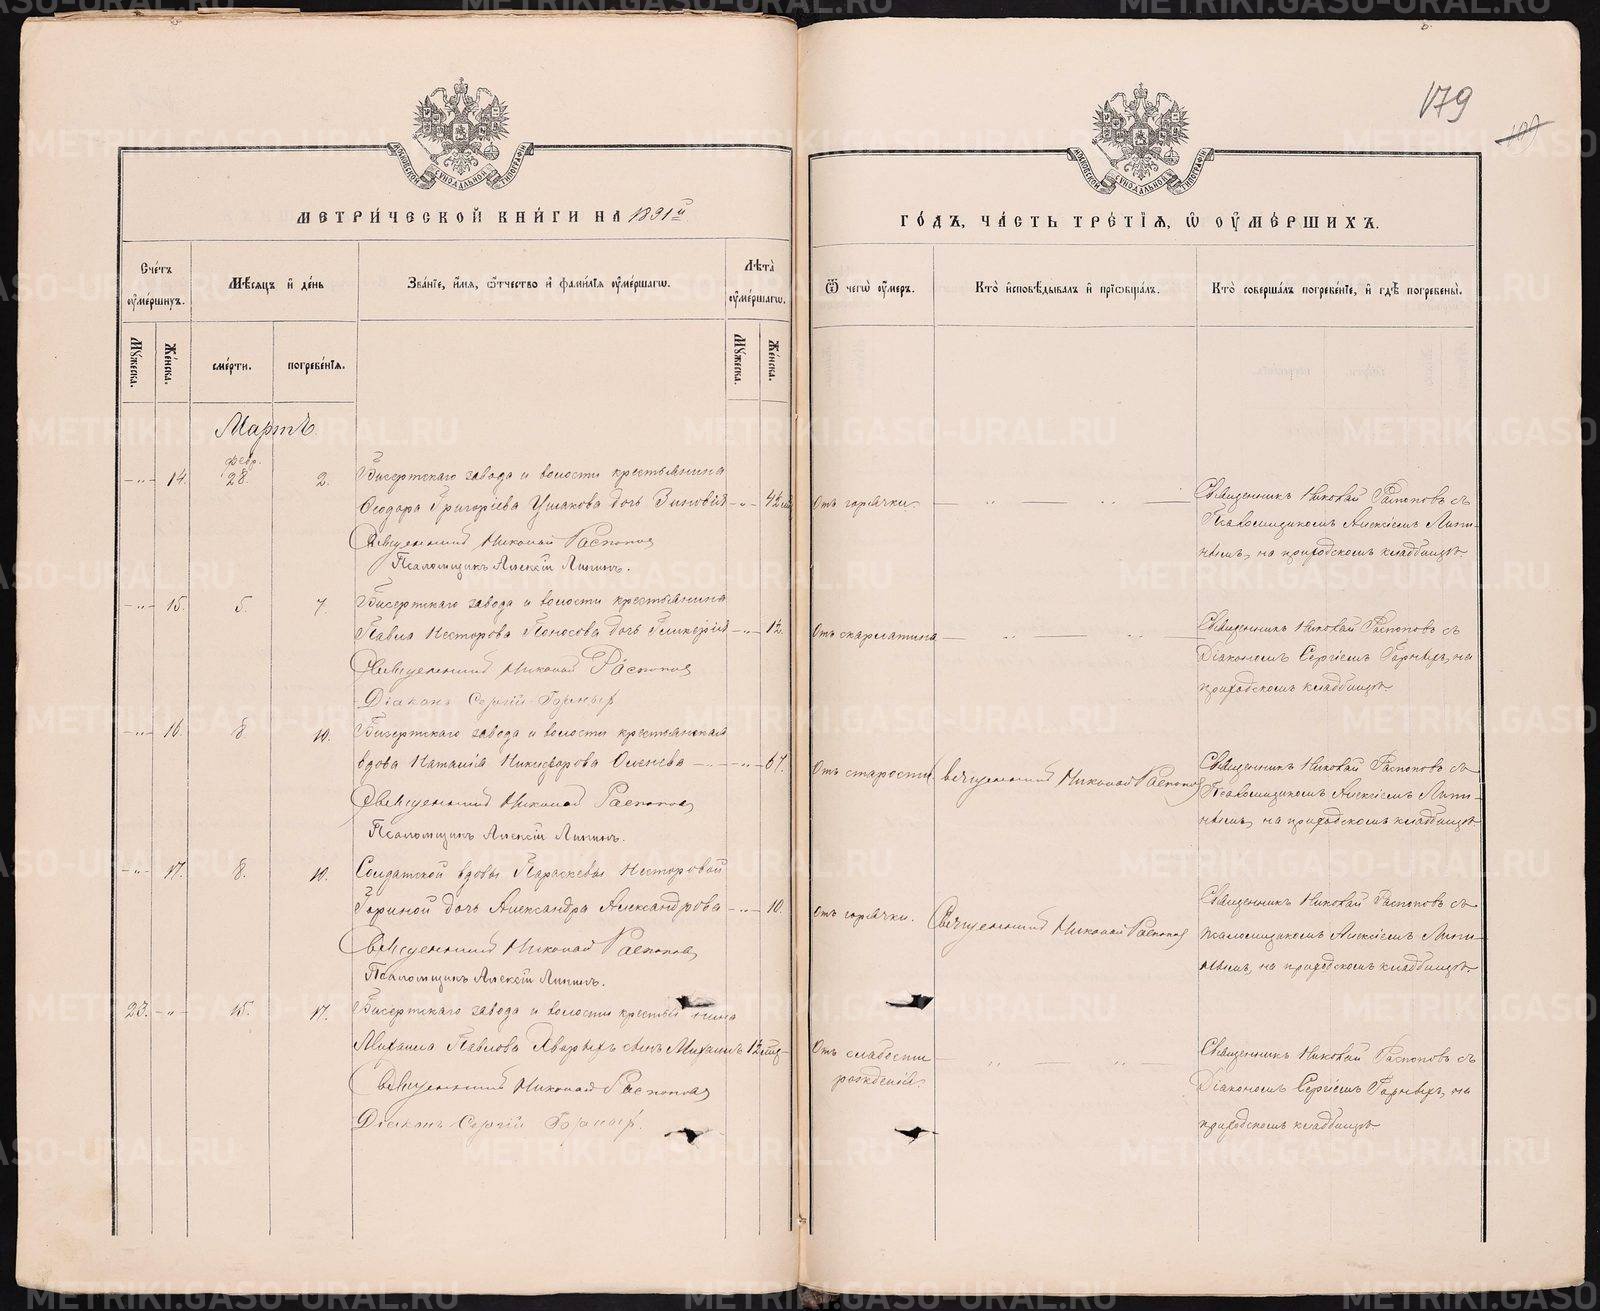 179
МОСКОВСКОЙ СѴНОДАЛЬНОЙ ТИПОГРАФІИ
МОСКОВСКОЙ СѴНОДАЛЬНОЙ ТИПОГРАФІИ
МЕТРИ́ЧЕСКОЙ КНИ́ГИ НА 1891й
ГО́ДЪ, ЧА́СТЬ ТРЕ́ТІЯ, Ѡ҆ ОУ҆МЕ́РШИХЪ.
Сче́тъ оу҆ме́ршихъ.
Мѣ́сяцъ и҆ де́нь
Зва́нїе, и҆́мя, ѻ҆́тчество и҆ фами́лїя оу҆ме́ршагѡ.
Лѣ́та оу҆ме́ршагѡ.
Ѿ чегѡ̀ оу҆́меръ.
Кто̀ и҆сповѣ́дывалъ и҆ прїѡбща́лъ.
Кто̀ соверша́лъ погребе́нїе, и҆ гдѣ̀ погребены̀.
Мꙋ́жеска.
Же́нска.
сме́рти.
погребе́нїя.
Мꙋ́жеска.
Же́нска.
Мартъ
— „ — 14. февр. 28. 2. Бисертскаго завода и волости крестьянина
Ѳеодора Григоріева Ушакова дочь Зиновія — „ — 4½
Священникъ Николай Распопов
Псаломщикъ Алексій Липинъ.
Отъ горячки. — „ — „ —
Священникъ Николай Распоповъ съ
Псаломщикомъ Алексіемъ Липи-
нымъ, на приходскомъ кладбищѣ.
— „ — 15. 5. 7. Бисертскаго завода и волости крестьянина
Павла Несторова Поносова дочь Гликерія — „ — 1½.
Священникъ Николай Распопов
Діаконъ Сергій Горныхъ
Отъ скарлатина — „ — „ —
Священникъ Николай Распоповъ съ
Діакономъ Сергіемъ Горныхъ, на
приходскомъ кладбищѣ
— „ — 16. 8. 10. Бисертскаго завода и волости крестьянская
вдова Наталія Никифорова Оленева — „ — 67.
Священникъ Николай Распопов
Псаломщикъ Алексій Липинъ.
Отъ старости
Священникъ Николай Распопов
Священникъ Николай Распоповъ съ
Псаломщикомъ Алексіемъ Липи-
нымъ, на приходскомъ кладбищѣ
— „ — 17. 8. 10. Солдатской вдовы Параскевы Несторовой
Гориной дочь Александра Александрова — „ — 10.
Священникъ Николай Распопов
Псаломщикъ Алексій Липинъ.
Отъ горячки.
Священникъ Николай Распопов
Священникъ Николай Распоповъ съ
псаломщикомъ Алексіемъ Липи-
нымъ, на приходскомъ кладбищѣ
23. — „ — 15. 17. Бисертскаго завода и волости крестьянина
Михаила Павлова сынъ Михаилъ 1½
Священникъ Николай Распопов
Діаконъ Сергій Горныхъ.
Отъ слабости
рожденія.
— „ — „ —
Священникъ Николай Распоповъ съ
Діакономъ Сергіемъ Горныхъ, на
приходскомъ кладбищѣ
METRIKI.GASO-URAL.RU